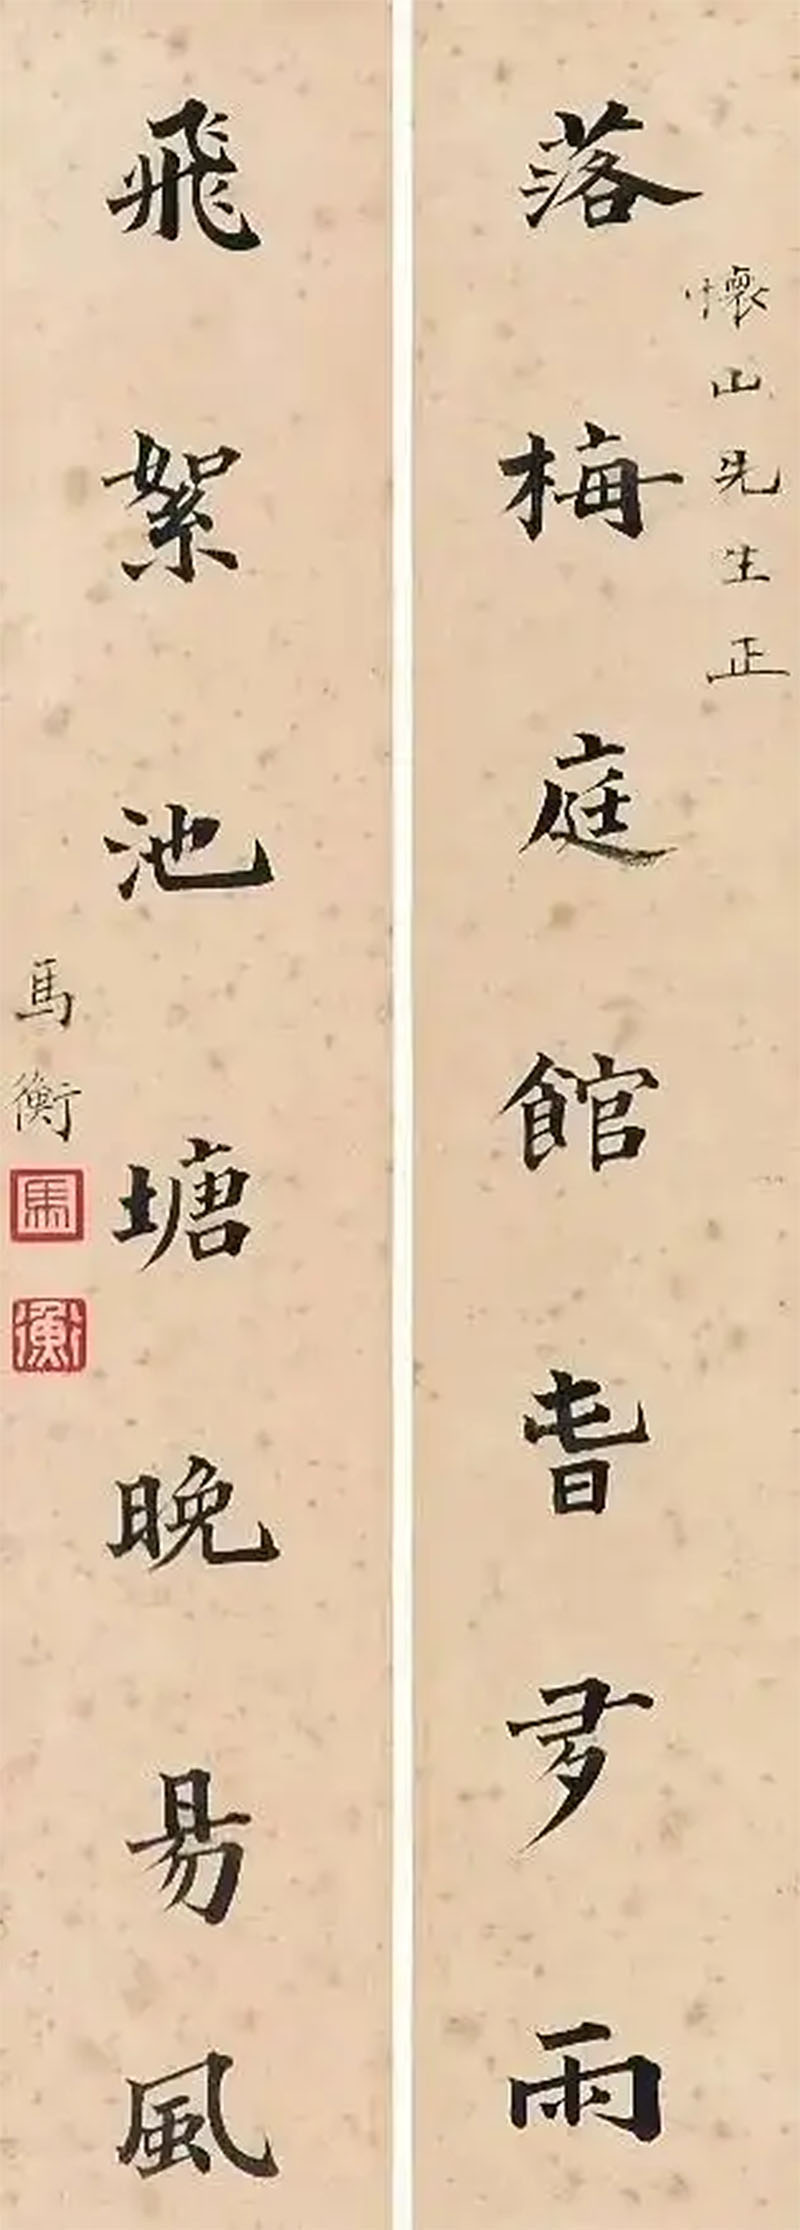 落梅庭館旾夛雨
懷山先生正
飛絮池塘晚易風
馬衡
馬
衡